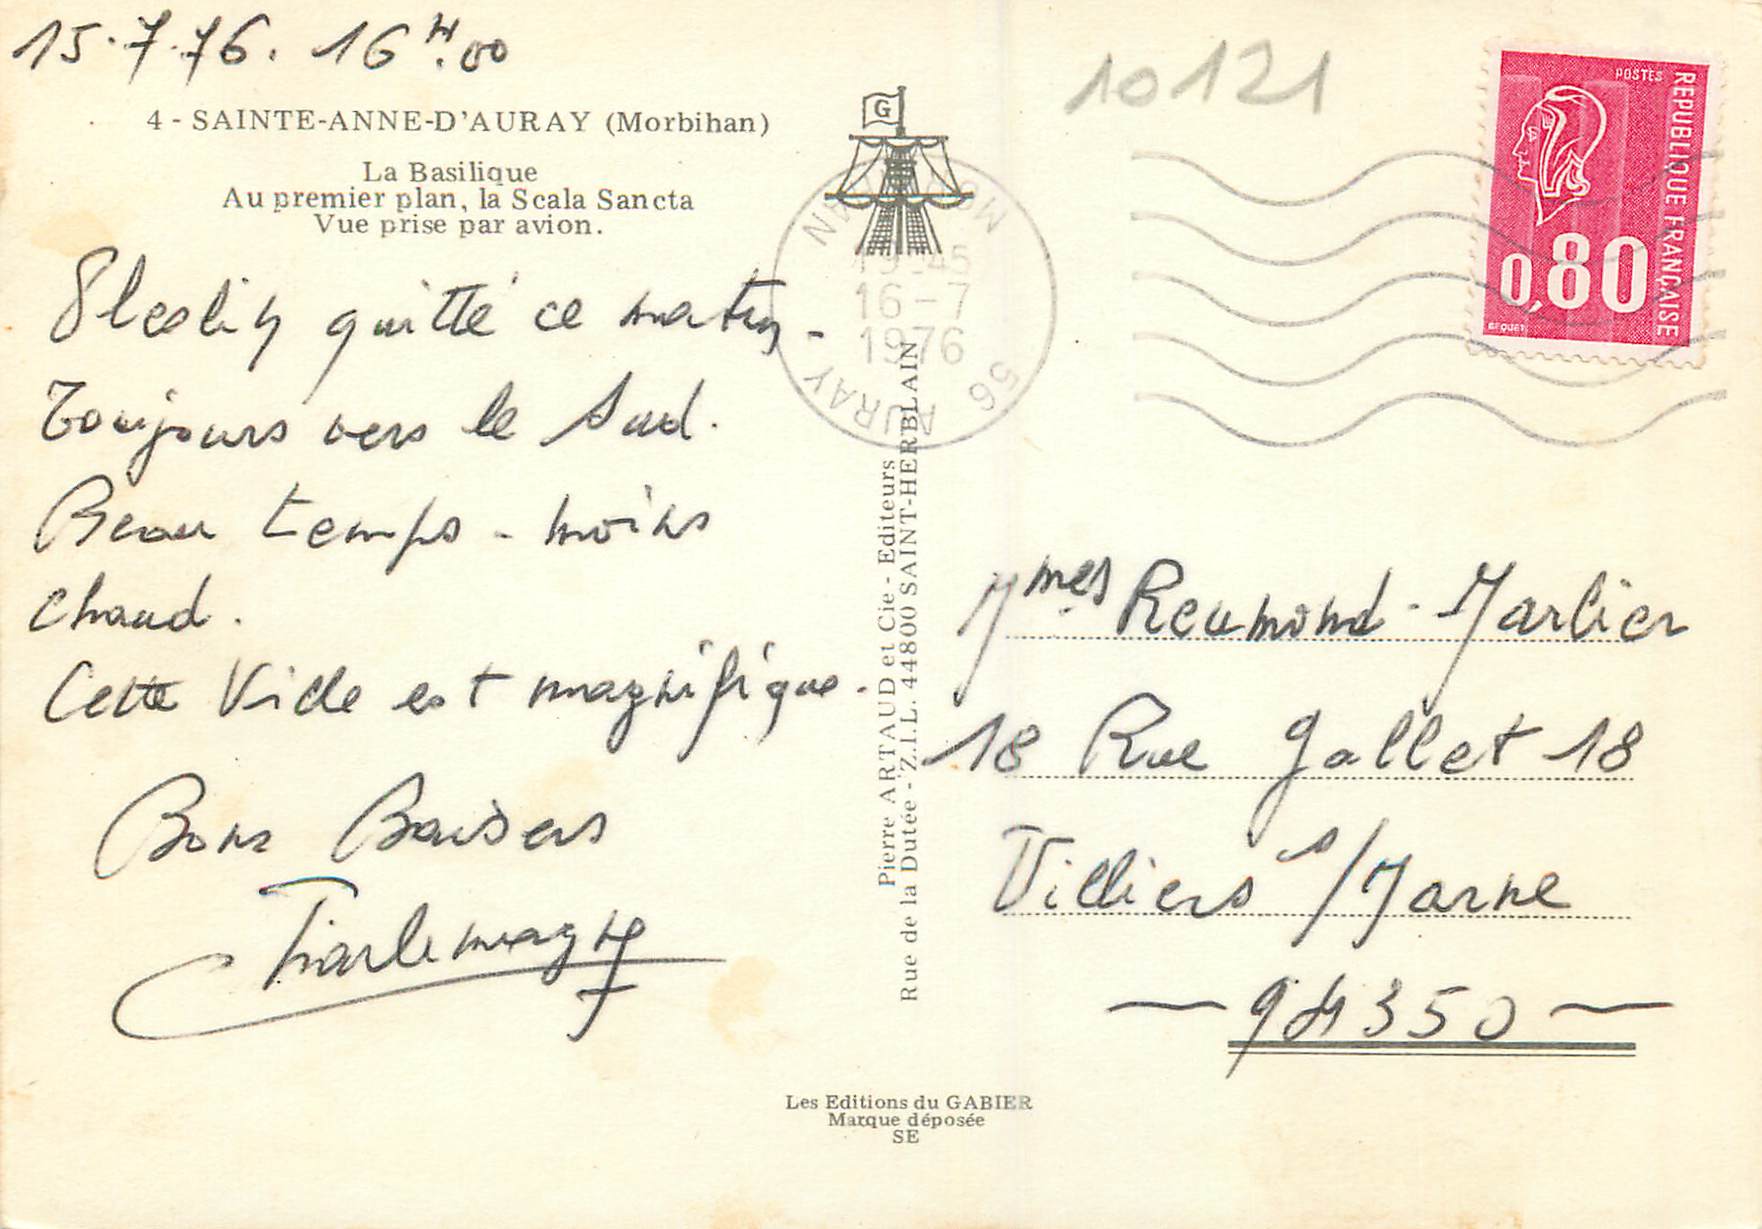 15.7.76. 16H.00
4 - SAINTE-ANNE-D'AURAY (Morbihan)
La Basilique
Au premier plan, la Scala Sancta
Vue prise par avion.
quitté ce matin -
Toujours vers le Sud.
Beau temps - moins
chaud.
Cette Ville est magnifique.
Bons Baisers
Charlemagne
G
MORBIHAN
19-45
16-7
1976
56 AURAY
Pierre ARTAUD et Cie - Editeurs
Rue de la Dutée - Z.I.L. 44800 SAINT-HERBLAIN
Les Editions du GABIER
Marque déposée
SE
10121
POSTES
REPUBLIQUE FRANÇAISE
0,80
BEQUET
Mmes Reumond - Marlier
18 Rue Gallet 18
Villiers s/Marne
- 94350 -